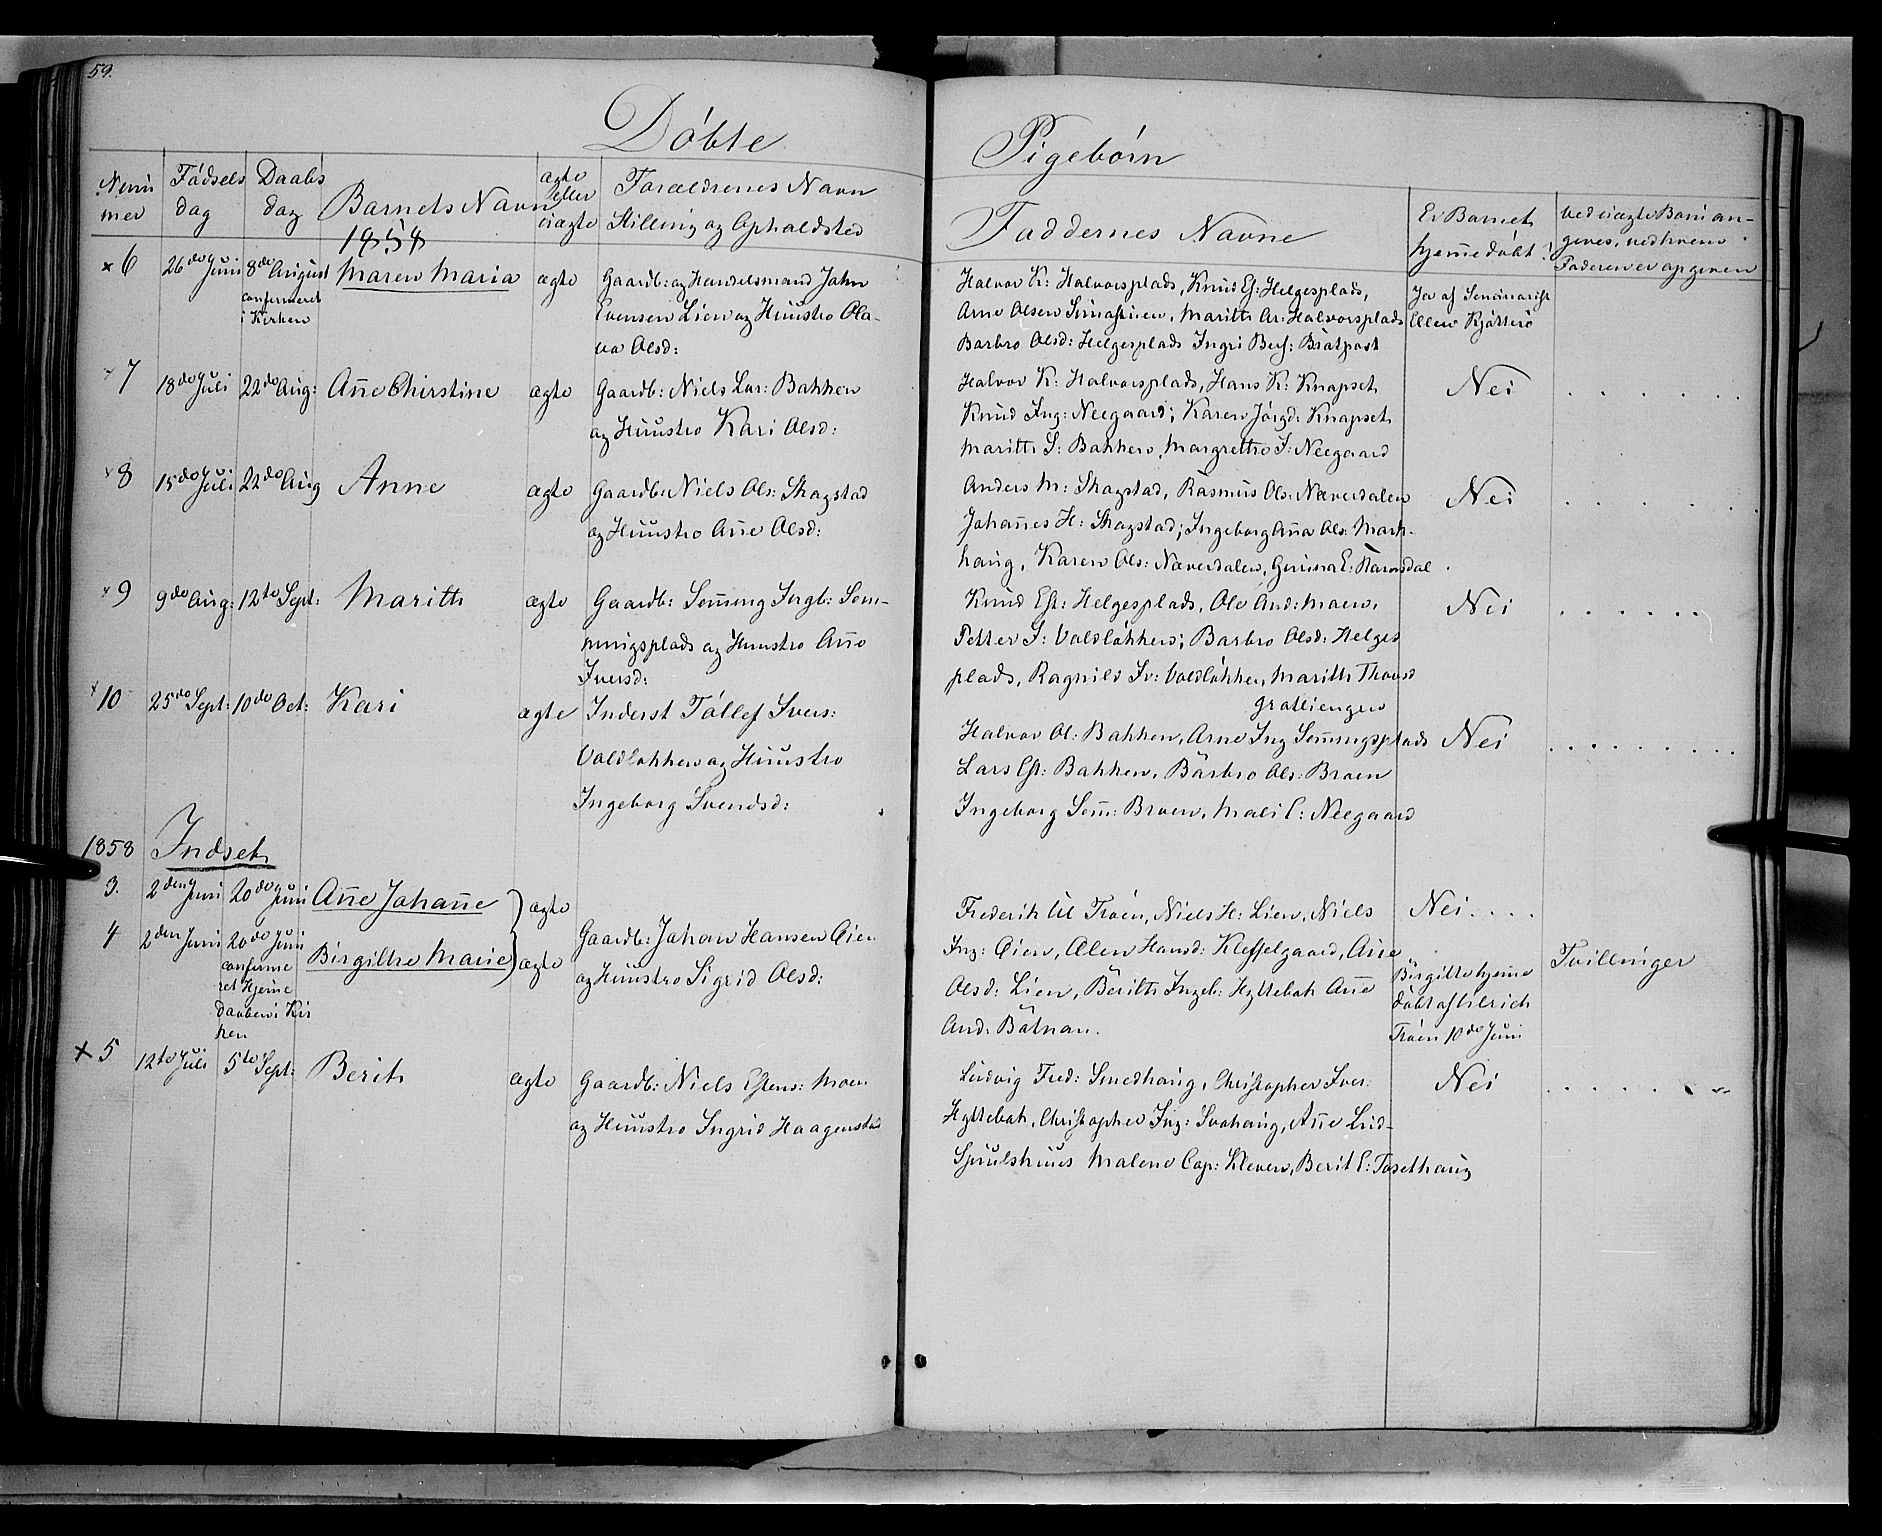 59.
Döbte
Pigebörn
Num
mer
Födsels
dag
Daabs
dag
Barnets Navn
1858
ægte
eller
uægte
Forældrenes Navn
Stilling og Opholdsted
Faddernes Navne
Er Barnet
hjemedöbt?
Ved uægte Børn an-
gives, ved hvem
Faderen er opgiven
× 6
26de Juni
8de August
confirmeret
i Kirken
Maren Maria
ægte
Gaardb: og Handelsmand John
Evensen Lien og Huustro Ola-
va Olsd:
Halvor K: Halvorsplads, Knud Es: Helgesplads,
Arne Olsen, Marith Ar: Halvorsplads
Barbro Olsd: Helgesplads Ingri
Ja af Seminarist
Ellew
7
18de Juli
22de Aug:
Añe Chirstine
ægte
Gaardb: Niels Lar: Bakken
og Huustro Kari Olsd:
Halvor K: Halvorsplads, Hans K: Knapset
Knud Ing: Neegaard; Karen Jörgd: Knapset
Marith S: Bakken, Margrethe J: Neegaard
Nei
× 8
15de Juli
22de Aug
Anne
ægte
Gaardb: Niels Ols: Skagstad
og Huustro Añe Olsd:
Anders M: Skagstad, Rasmus Ols: Næverdalen
Johañes H: Skagstad; Ingeborg Aña Ols: Mark-
haug, Karen Ols: Næverdalen, Gurina E: Ramsdal
Nei
× 9
9de Aug:
12te Sept:
Marith
ægte
Gaardb: Semüng Ingb: Sem-
mingsplads og Huustro Añe
Iversd:
Knud Est: Helgesplads, Ole And: Moen,
Petter I: Voldlökken; Barbro Olsd: Helges
plads, Ragnild Iv: Voldlökken, Marith Thorsd
Grøttiengen
Nei
× 10
25de Sept:
10de Oct:
Kari
ægte
Inderst Töllef Ivers:
Voldlökken og Huustro
Ingeborg Svendsd:
Halvor Ol: Bakken, Arne Ing Semingsplads
Lars Est: Bakken, Barbro Ols: Broen
Ingeborg Sem: Broen, Mali C: Neegaard
Nei
1858
Indset
3.
2den Juni
20de Juni
Añe Johañe
ægte
4
2den Juni
20de Juni
confirme
ret Hjeme
daaben i Kir
ken
Birgithe Marie
ægte
Gaardb: Johan Hansen Öien
og Huustro Sigrid Olsd:
Frederik Ul Tröen, Niels H: Lien, Niels
Ing: Öien, Ælen Hansd: Kleffelgaard, Añe
Olsd: Lien, Berith Ingeb: Hyttebak Añe
And: Bötnan.
Nei
Birgitte hjeme
döbt af Ulrich
Tröen 10de Juni
Tvillinger
× 5
12te Juli
5te Sept:
Berith
ægte
Gaardb: Niels Estens: Moen
og Huustro Ingrid Haagensdat
Ludvig Fred: Smedhaug, Christopher Iver:
Hyttebak, Christopher Ing: Svohaug, Añe Lud-
Spiulshuus Malene Cap: Kleven, Berit C: Tosethaug
Nei